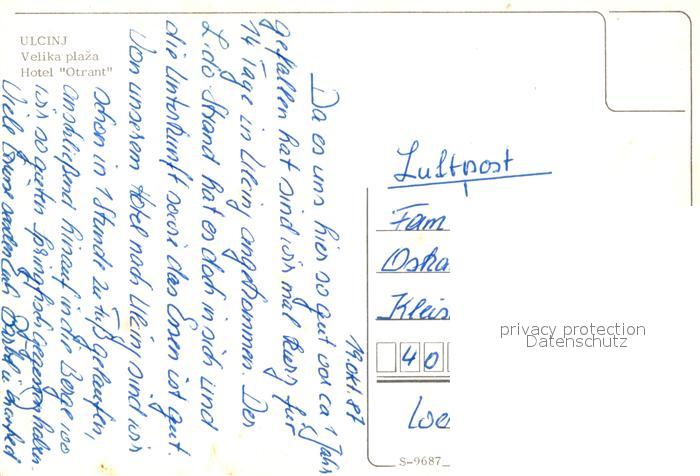 ULCINJ
Velika plaža
Hotel "Otrant"
19. Okt. 87
Da es uns hier so gut vor ca 1 Jahr
gefallen hat sind wir mal kurz für
14 Tage in Ulcinj angekommen. Der
Lido Strand hat es doch in sich und
die Unterkunft sowie das Essen ist gut.
Von unserem Hotel nach Ulcinj sind wir
schon in 1 Stunde zu Fuß gelaufen,
anschließend hinauf in die Berge wo
wir so guten gegessen haben.
Viele Grüße senden Euch
Luftpost
Fam
Oska
Kleis
40
S-9687
privacy protection
Datenschutz